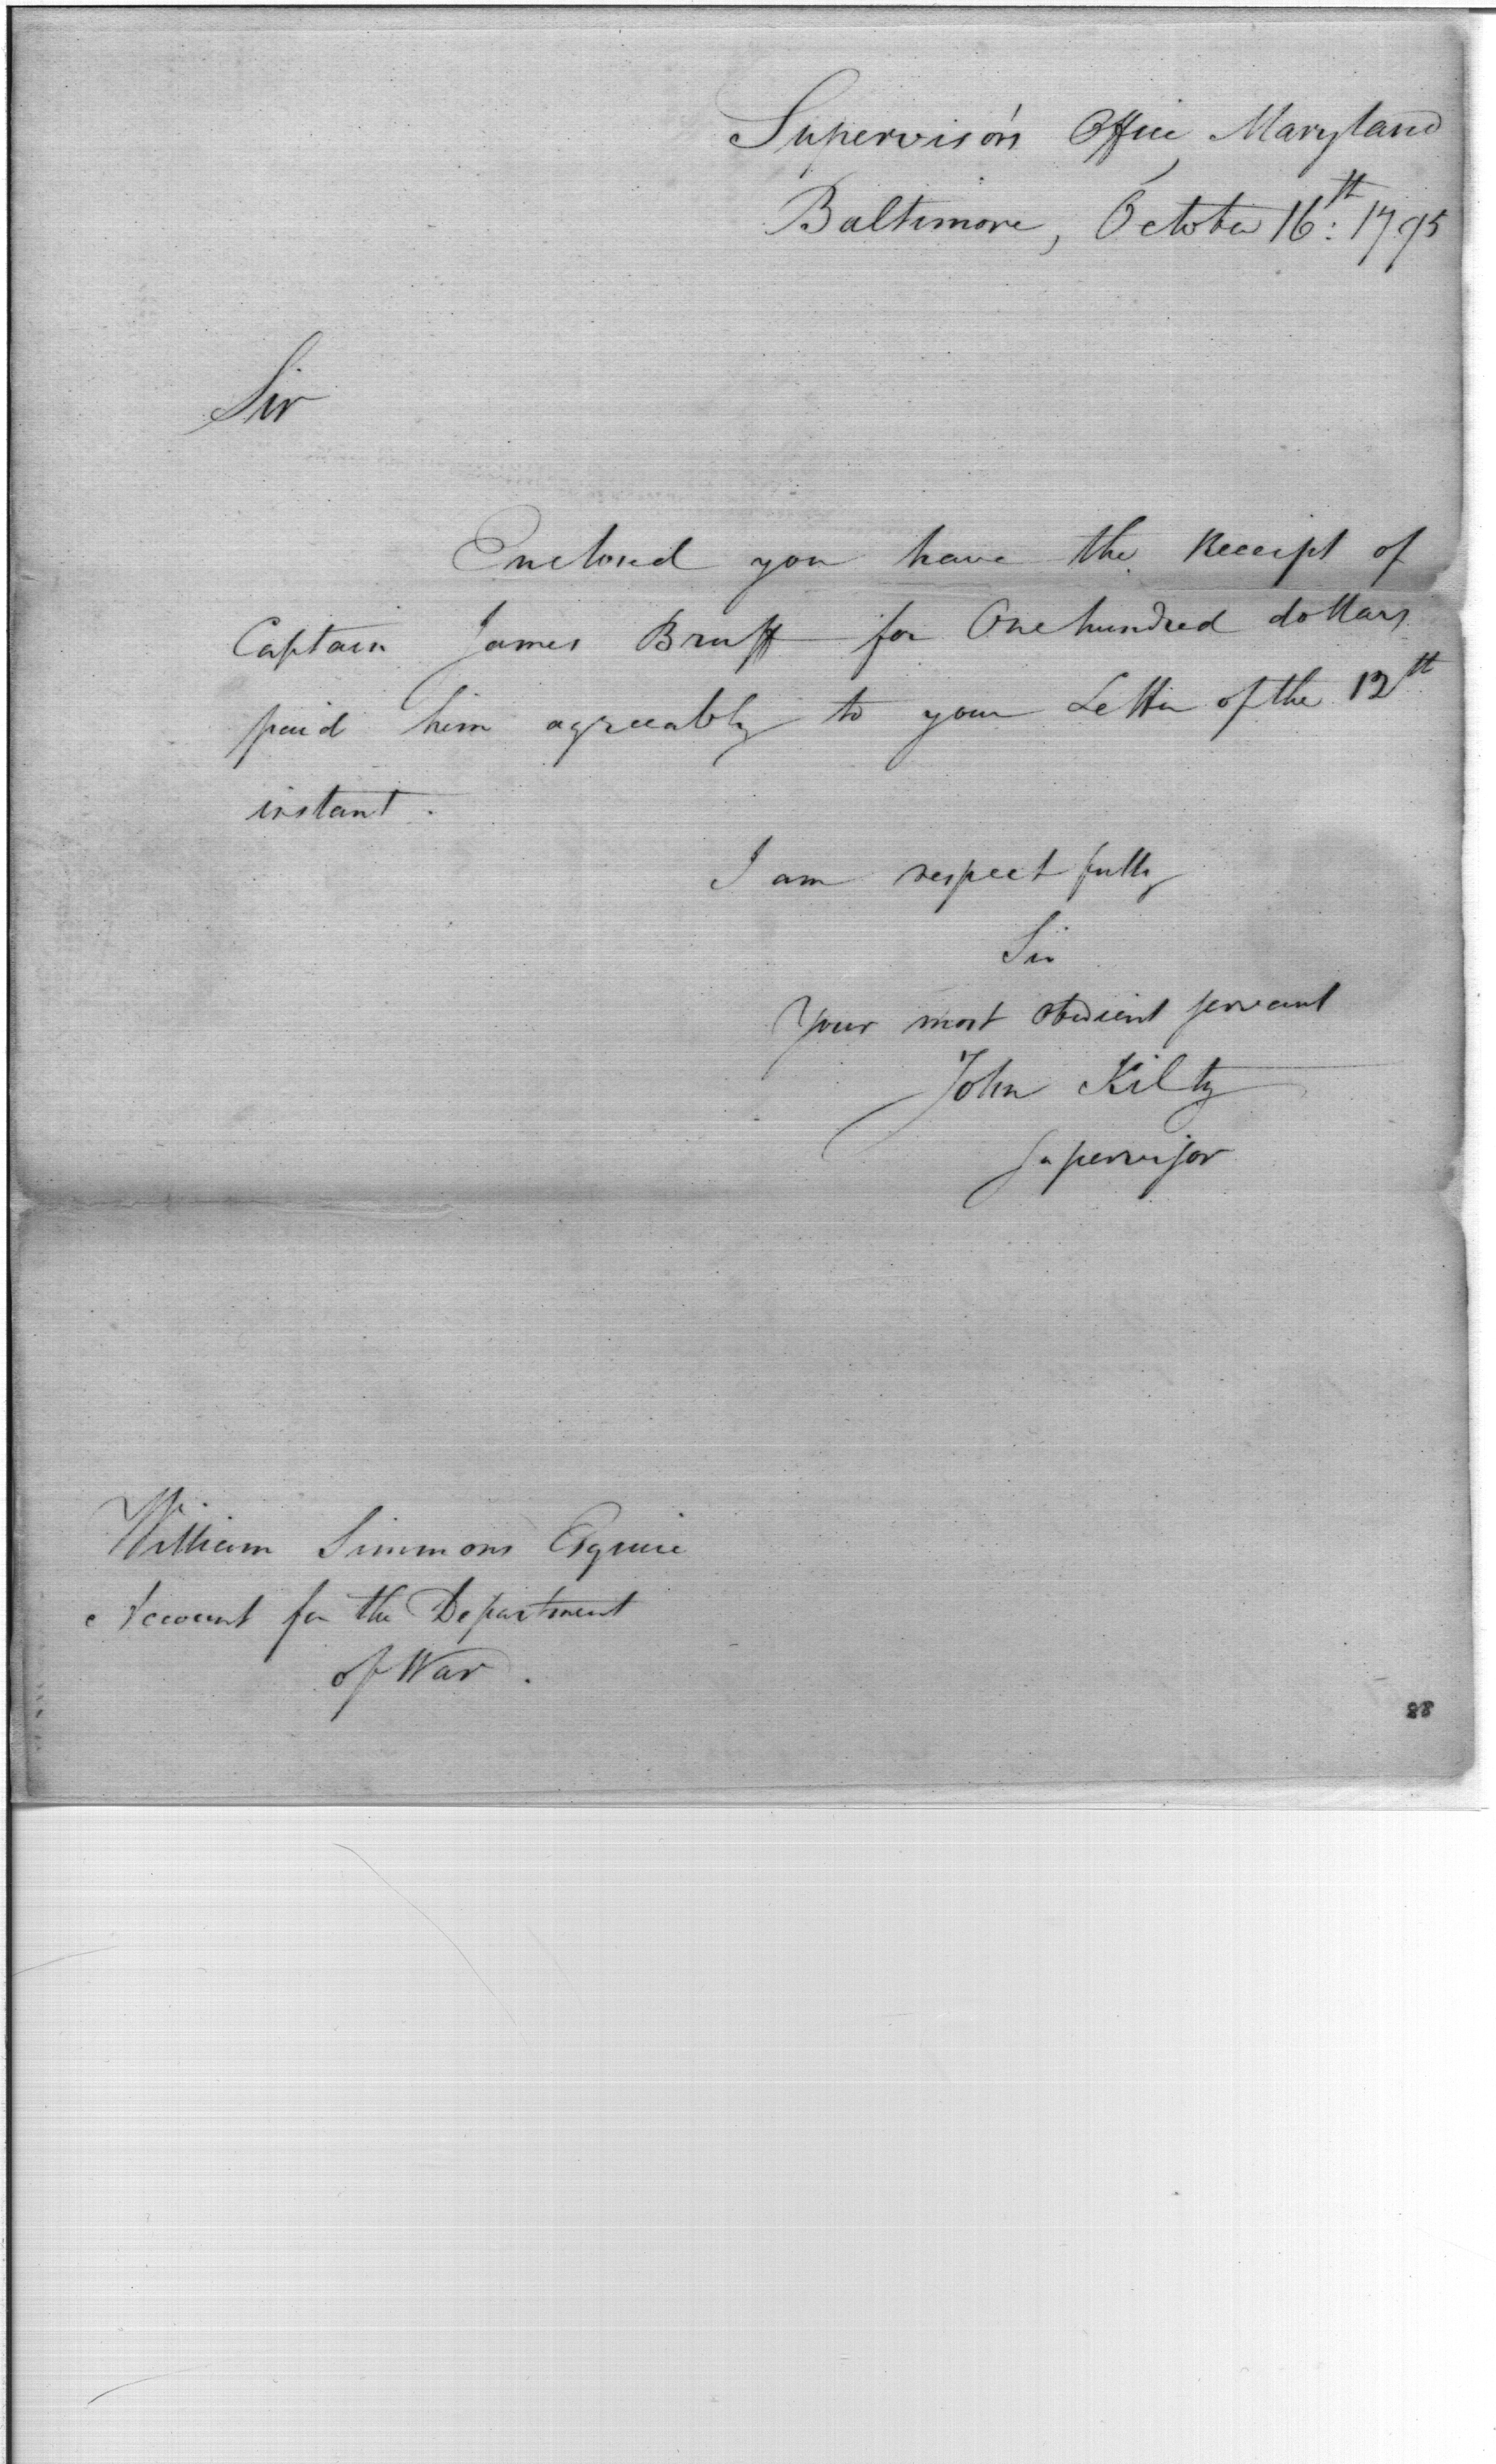 Supervisor's Office, Maryland
Baltimore, October 16th: 1795
Sir
Enclosed you have the Receipt of
Captain James Bruff for One hundred dollars
paid him agreeably to your Letter of the 12th
instant.
I am respectfully
Sir
Your most obedient servant
John Kilty
Supervisor
William Simmons Esquire
Account for the Department
of War.
88